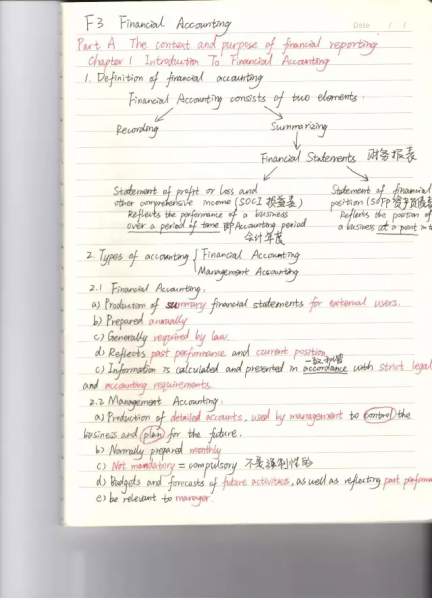 F3 Financial Accounting
Date / /
Part A The context and purpose of financial reporting
Chapter 1 Introduction To Financial Accounting
1. Definition of financial accounting
Financial Accounting consists of two elements.
Recording Summarizing
Financial Statements 财务报表
Statement of profit or loss and
other comprehensive income (SOCI 损益表)
Reflects the performance of a business
over a period of time 即Accounting period
会计年度
Statement of financial
position (SOFP 资产负债表
Reflects the position of
a business at a point in t
2. Types of accounting Financial Accounting
Management Accounting
2.1 Financial Accounting.
a) Production of summary financial statements for external users.
b) Prepared annually
c) Generally required by law.
d) Reflects past performance and current position
c) Information is calculated and presented in accordance with strict legal
and accounting requirements.
2.2 Management Accounting.
a) Production of detailed accounts, used by management to control the
business and plan for the future.
b) Normally prepared monthly
c) Not mandatory = compulsory 不是强制性的
d) Budgets and forecasts of future activities, as well as reflecting past performa
e) be relevant to manager.